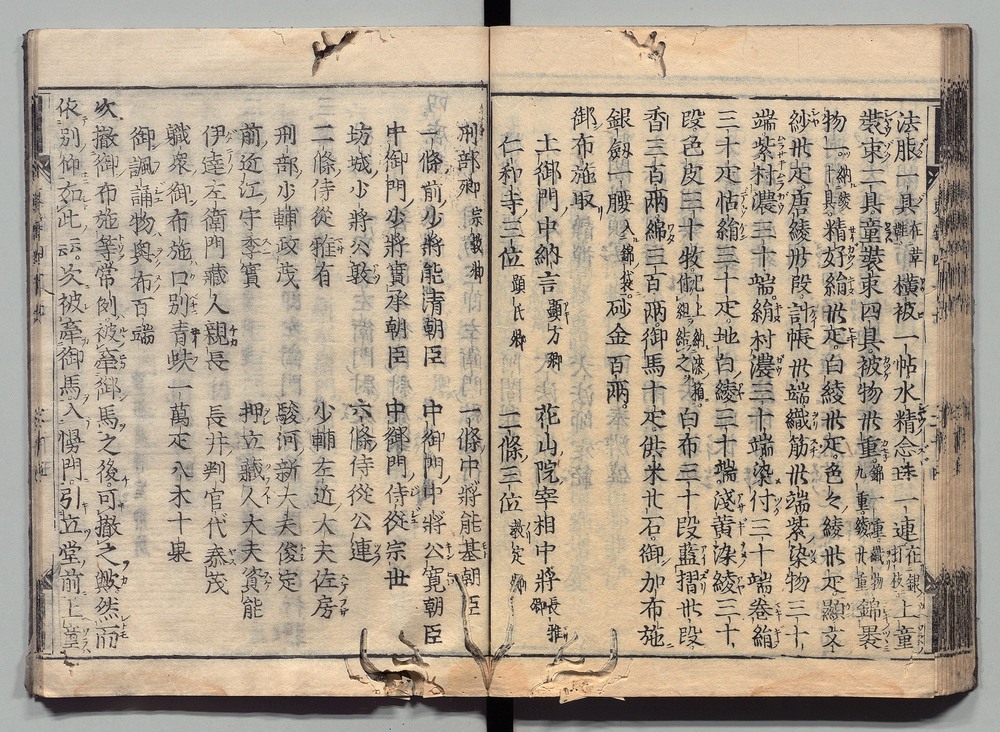 法服一具在草鞋横被一帖水精念珠一連在銀打枝上童
装束二具童装束四具被物卅重錦一重織物九重綾廿重錦裹
物一納綾十具精好絹卅疋白綾卅疋色々綾卅疋顕文
紗卅疋唐綾卅段計帳卅端織筋卅端紫染物三十
端紫村濃三十端絹村濃三十端染付三十端巻絹
三十疋帖絹三十疋地白綾三十端浅黄染綾三十
段色皮三十牧已上納漆箱以組結之白布三十段藍摺卅段
香三百両綿三百両御馬十疋供米廿石御加布施
銀剱一腰入錦袋砂金百両
御布施取
土御門中納言顕方卿　花山院宰相中将長雅卿
仁和寺三位顕氏卿　二條三位教定卿
刑部卿宗教卿　一條中将能基朝臣
一條前少将能清朝臣　中御門中将公寛朝臣
中御門少将實承朝臣　中御門侍従宗世
坊城少将公敦　六條侍従公連
二條侍従雅有　少輔左近大夫佐房
刑部少輔政茂　駿河新大夫俊定
前近江守季實　押立蔵人大夫資能
伊達左衛門蔵人親長　長井判官代泰茂
職衆御布施口別青蚨一萬疋八木十果
御諷誦物奥布百端
次撤御布施等常例被牽御馬之後可撤之歟然而
依別仰如此云次被牽御馬入幔門引立堂前上童